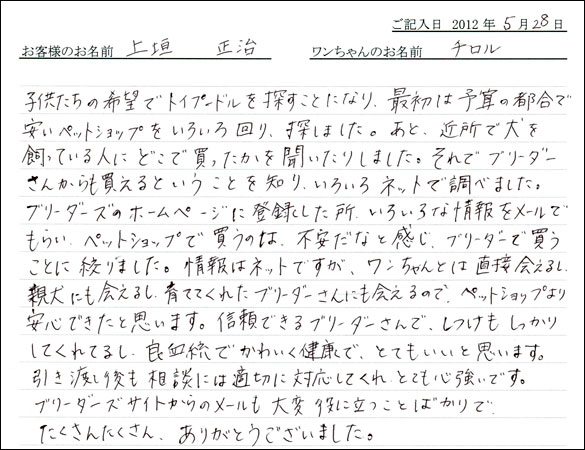 ご記入日 2012年5月28日
お客様のお名前 上垣 正治 ワンちゃんのお名前 チロル
子供たちの希望でトイプードルを探すことになり、最初は予算の都合で
安いペットショップをいろいろ回り、探しました。あと、近所で犬を
飼っている人にどこで買ったかを聞いたりしました。それでブリーダー
さんからも買えるということを知り、いろいろネットで調べました。
ブリーダーズのホームページに登録した所、いろいろな情報をメールで
もらい、ペットショップで買うのは、不安だなと感じ、ブリーダーで買う
ことに絞りました。情報はネットですが、ワンちゃんとは直接会えるし、
親犬にも会えるし、育ててくれたブリーダーさんにも会えるので、ペットショップより
安心できたと思います。信頼できるブリーダーさんで、しつけもしっかり
してくれてるし、良血統でかわいく健康で、とてもいいと思います。
引き渡し後も相談には適切に対応してくれ、とても心強いです。
ブリーダーズサイトからのメールも大変役に立つことばかりで、
たくさんたくさん、ありがとうございました。